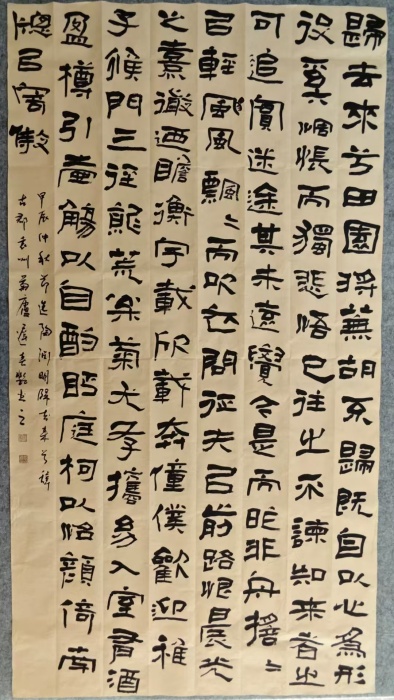 歸去來兮田園將蕪胡不歸既自以心為形
役奚惆悵而獨悲悟已往之不諫知來者之
可追實迷途其未遠覺今是而昨非舟搖〻
以輕颺風飄〻而吹衣問征夫以前路恨晨光
之熹微迺瞻衡宇載欣載奔僮僕歡迎稚
子候門三徑就荒松菊猶存攜幼入室有酒
盈樽引壺觴以自酌眄庭柯以怡顏倚南
窗以寄傲
甲辰仲秋節選陶淵明歸去來兮辭
古郡